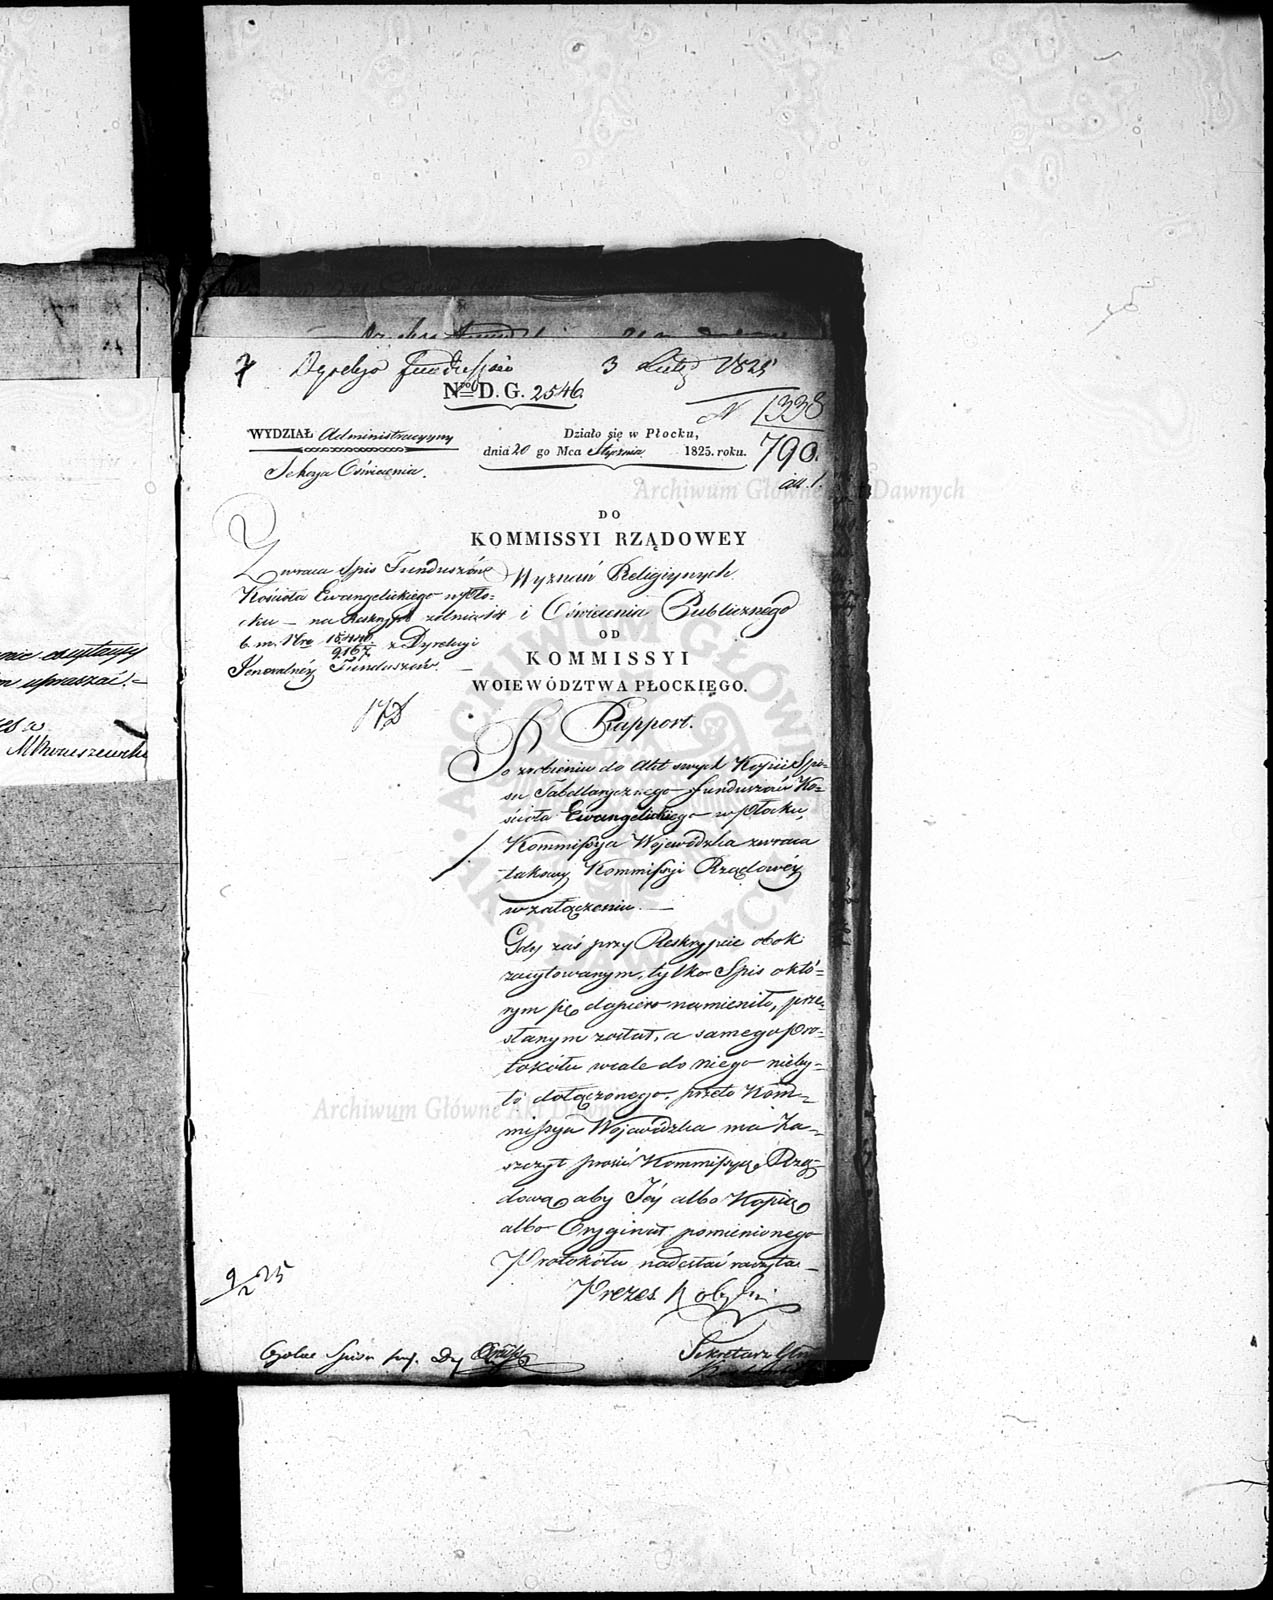 7 Dyrekcja Funduszów 3 Lutego 1825
Nro D. G. 2546.
N 1338
790.
WYDZIAŁ Administracyjny
Sekcya Oświecenia.
Działo się w Płocku,
dnia 20 go Mca Stycznia 1825. roku.
DO
KOMMISSYI RZĄDOWEY
Wyznań Religijnych
i Oświecenia Publicznego
OD
KOMMISSYI
WOIEWÓDZTWA PŁOCKIEGO.
Zwraca Spis Funduszów
Kościoła Ewangelickiego w Pło-
cku – na Reskrypt z dnia 14
b. m. Nro z Dyrekcyi
Jeneralnéy Funduszów. –
Rapport.
Po zrobieniu do Akt swych Kopii Spi-
su Tabellarycznego funduszów Ko-
ścioła Ewangelickiego w Płocku,
Kommissya Wojewódzka zwraca
takowy Kommissyi Rządowéy
w załączeniu. —
Gdy zaś przy Reskrypcie obok
zacytowanym, tylko Spis o któ-
rym się dopiero namieniło, prze-
słanym został, a samego Pro-
tokółu wcale do niego nieby-
ło dołączonego, przeto Kom-
missya Wojewódzka ma Za-
szczyt prosić Kommissyą Rzą-
dową aby Jéy albo Kopią
albo Oryginał pomienionego
Protokółu nadesłać raczyła –
Prezes
9/2 25
Sekretarz
Archiwum Główne Akt Dawnych
Archiwum Główne Akt Dawnych
ARCHIWUM GŁÓWNE
AKT DAWNYCH